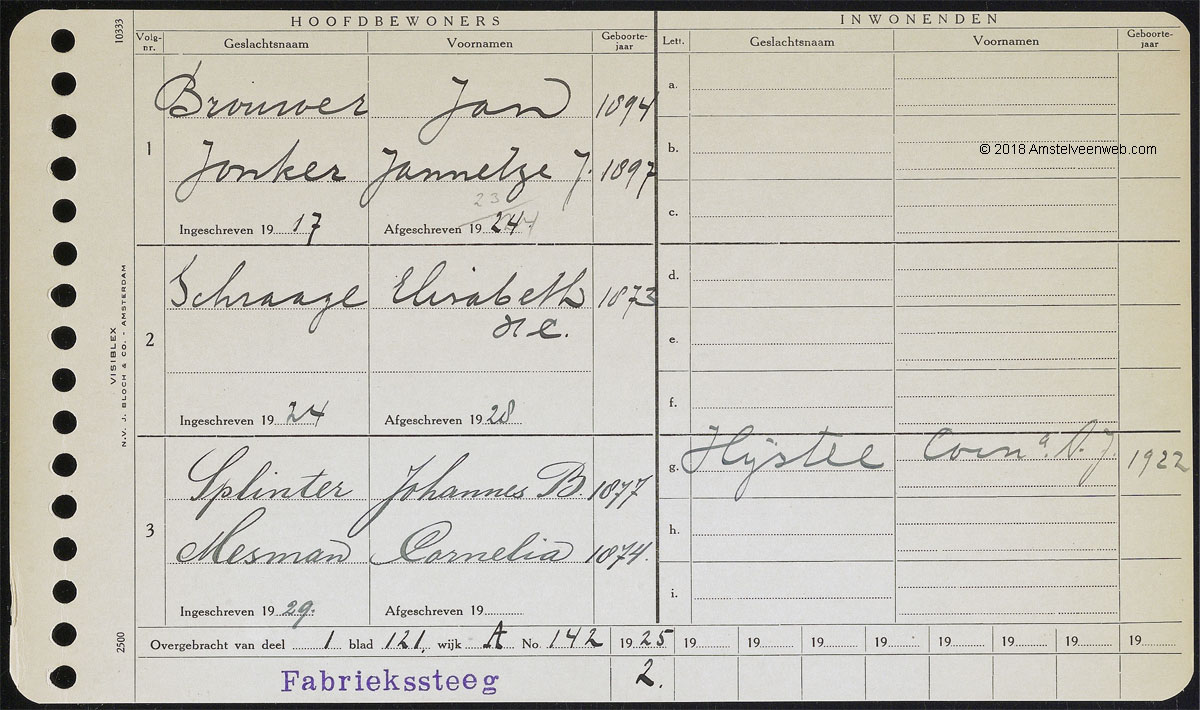 HOOFDBEWONERS
INWONENDEN
Volg-nr. Geslachtsnaam Voornamen Geboorte-jaar
Lett. Geslachtsnaam Voornamen Geboorte-jaar
1
Brouwer Jan 1894
Jonker Jannetze J. 1897
23
Ingeschreven 19 17 Afgeschreven 19 24
2
Schraage Elisabeth 1873
H C.
Ingeschreven 19 24 Afgeschreven 19 28
3
Splinter Johannes B. 1877
Mesman Cornelia 1874.
Ingeschreven 19 29. Afgeschreven 19
a.
b.
© 2018 Amstelveenweb.com
c.
d.
e.
f.
g. Hijstee Corna. D. J. 1922
h.
i.
Overgebracht van deel 1 blad 121. wijk A No. 142 19 25 19 19 19 19 19 19 19 19
Fabriekssteeg 2.
10333
VISIBLEX
N.V. J. BLOCH & CO. - AMSTERDAM
2500